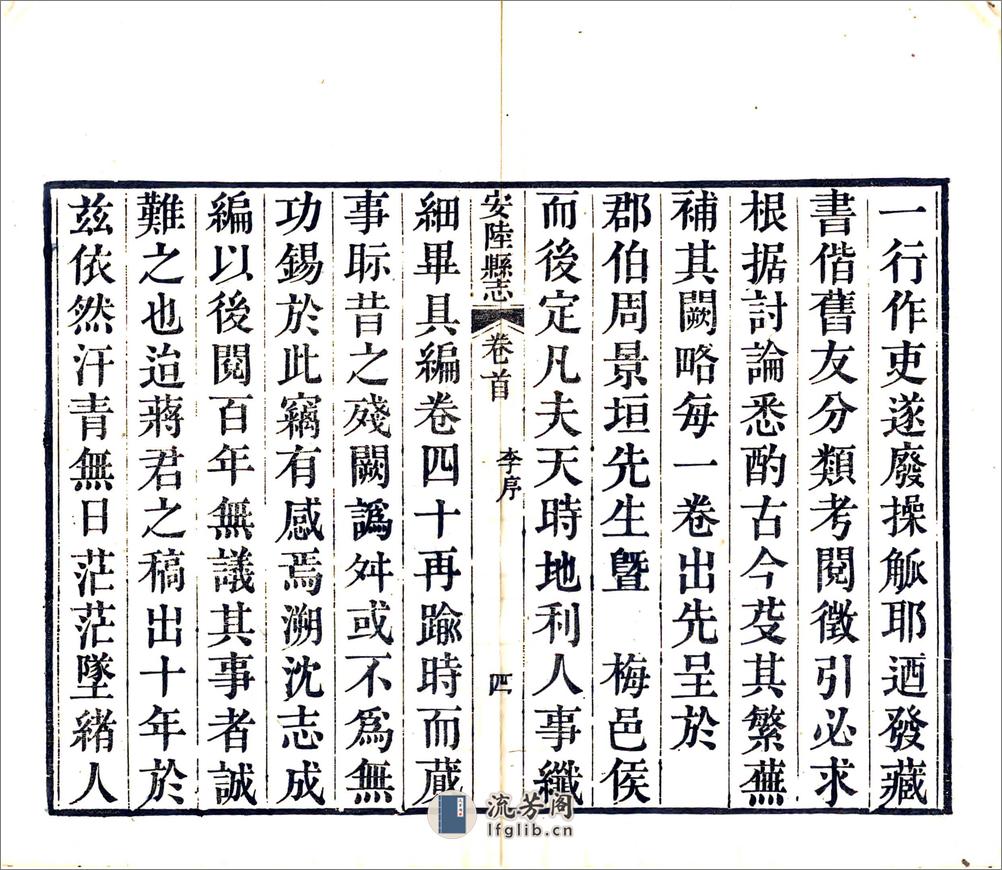 一行作吏遂廢操觚耶迺發藏
書偕舊友分類考閱徵引必求
根据討論悉酌古今芟其繁蕪
補其闕略每一卷出先呈於
郡伯周景垣先生曁　梅邑侯
而後定凡夫天時地利人事纖
安陸縣志　卷首　李序　四
細畢具編卷四十再踰時而蕆
事眎昔之殘闕譌舛或不爲無
功錫於此竊有感焉溯沈志成
編以後閱百年無議其事者誠
難之也迨蔣君之稿出十年於
兹依然汗青無日茫茫墜緒人
流芳阁
lfglib.cn